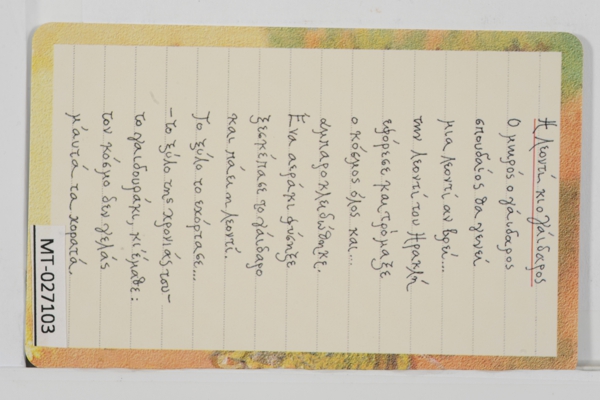 Η λεοντή κι ο γάιδαρος
Ο μικρός ο γάιδαρος
σπουδαίος θα γενεί
μια λεοντή αν βρει...
την λεοντή του Ηρακλή
εφόρεσε και τρόμαξε
ο κόσμος όλος και...
αμπαροκλειδώθηκε.
Ένα αεράκι φύσηξε
ξεσκέπασε το γάιδαρο
και πάει η λεοντή.
Το ξύλο το εχόρτασε...
-το ξύλο της χρονιάς του-
το γαϊδουράκι, κι έμαθε:
τον κόσμο δεν γελάς
μ' αυτά τα χορατά.
MT-027103